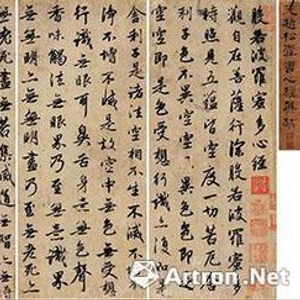 元趙松雪書心經
般若波羅蜜多心經
觀自在菩薩行深般若波羅蜜
時照見五蘊皆空度一切苦厄
子色不異空空不異色色
是空空即是色受想行識亦復
舍利子是諸法空相不生不滅不垢
淨不增不減是故空中無色無受
行識無眼耳鼻舌身意無色聲
香味觸法無眼界乃至無意識界
無無明亦無無明盡乃至無老死亦
無老死盡無苦集滅道無智亦無得
Artron.Net